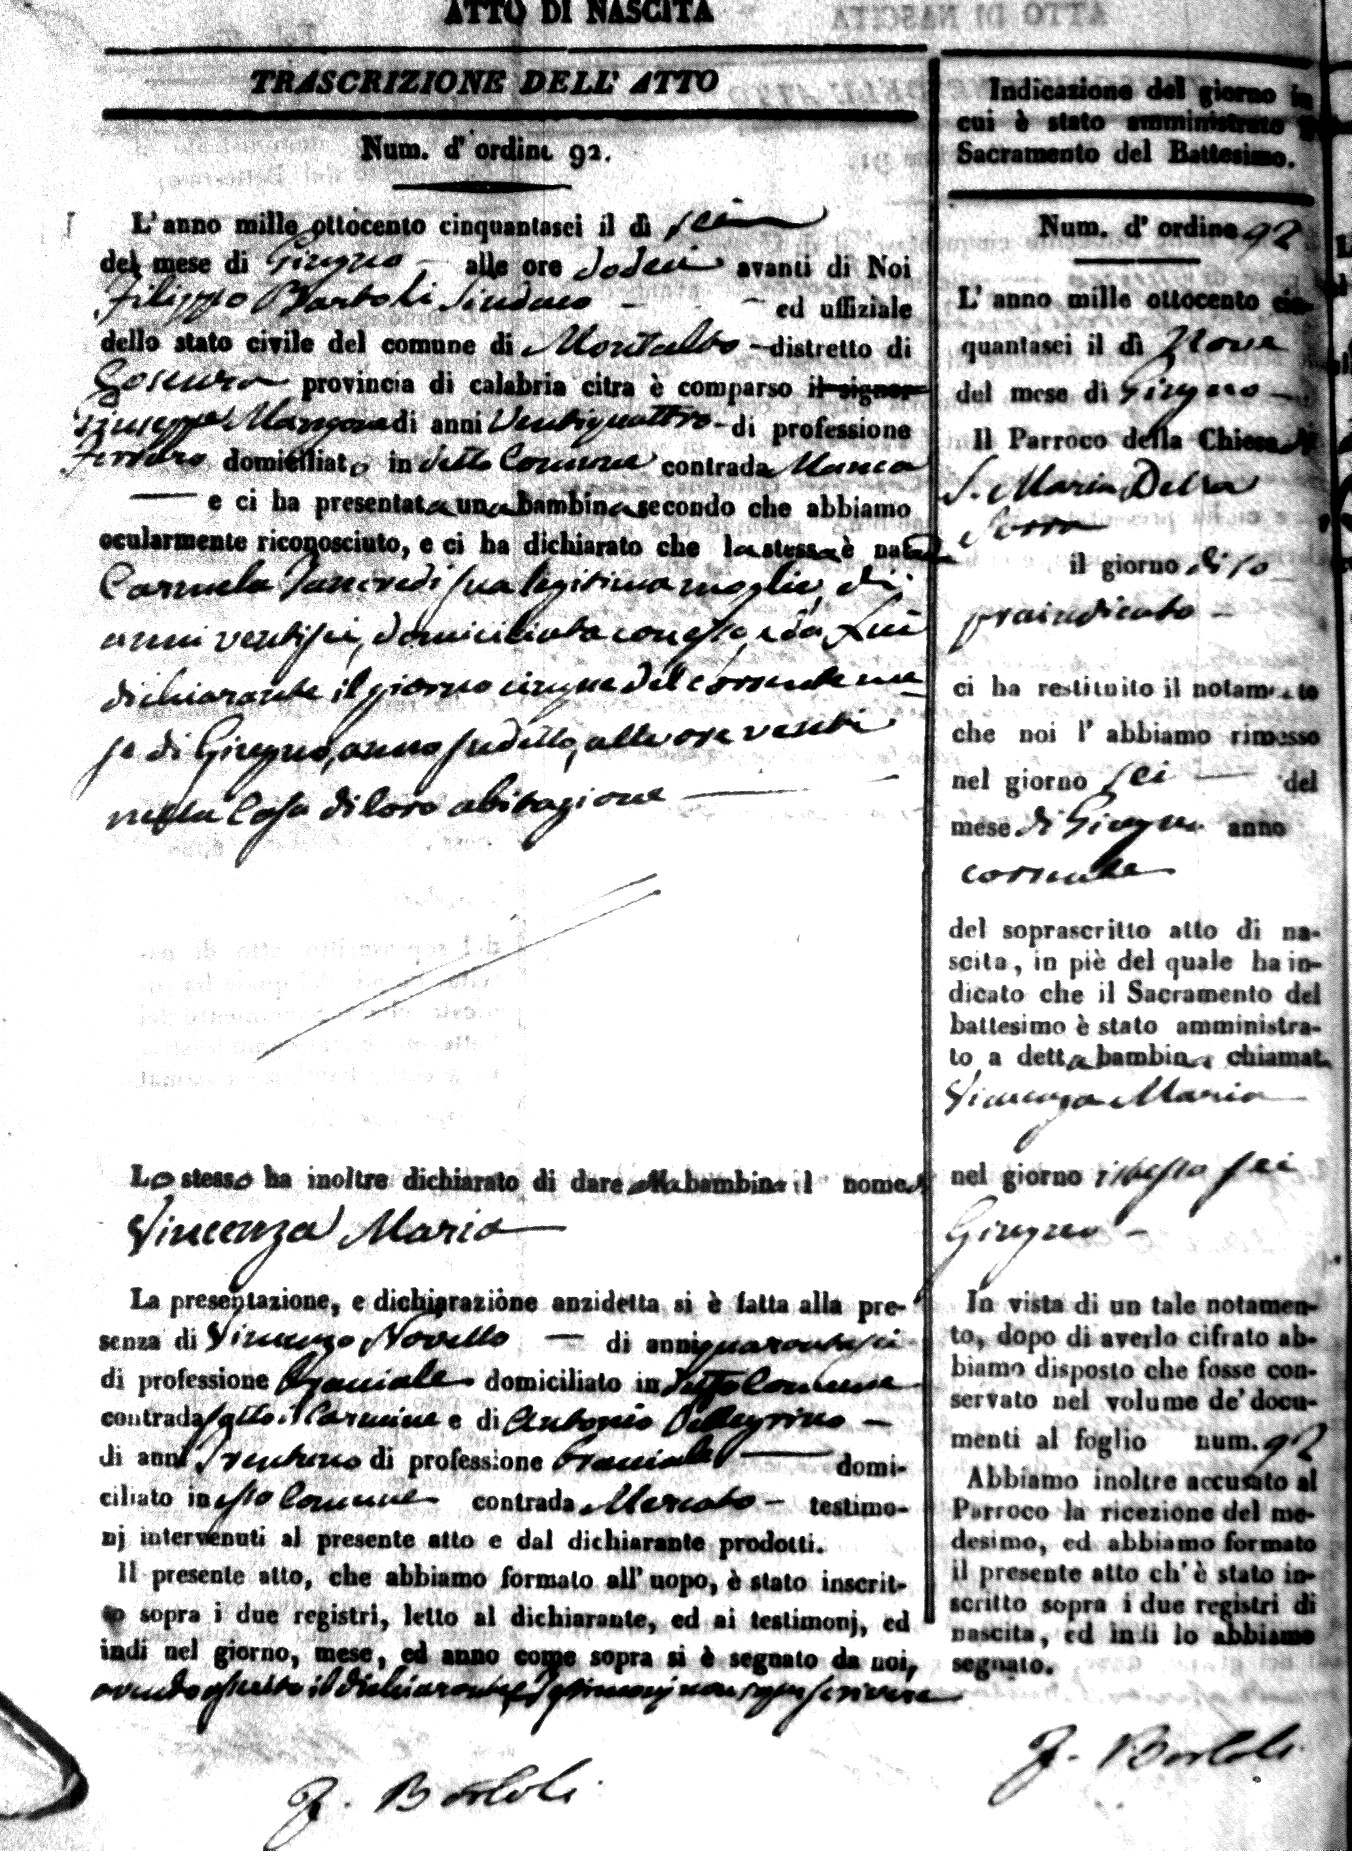 ATTO DI NASCITA
TRASCRIZIONE DELL' ATTO
Num. d' ordine 92.
L' anno mille ottocento cinquantasei il dì sei
del mese di Giugno — alle ore dodeci avanti di Noi
Filippo Bartoli Sindaco - - - ed uffiziale
dello stato civile del comune di Montalto — distretto di
Cosenza provincia di calabria citra è comparso il signor
Giuseppe Mangone di anni Ventiquattro - di professione
Ferraro domiciliato in detto Comune contrada Manca
— e ci ha presentata una bambina secondo che abbiamo
ocularmente riconosciuto, e ci ha dichiarato che la stessa è nata da
Carmela Tancredi sua legitima moglie, di
anni ventisei, domiciliata con esso, e da Lui
dichiarante il giorno cinque del corrente me
se di Giugno, anno sudetto, alle ore venti
nella Casa di loro abitazione —
Lo stesso ha inoltre dichiarato di dare alla bambina il nome di
Vincenza Maria
La presentazione, e dichiarazione anzidetta si è fatta alla pre-
senza di Vincenzo Novello — di anni quarantasei
di professione domiciliato in detto Comune
contrada sotto il Carmine e di Antonio Pellegrino —
di anni Trentuno di professione — domi-
ciliato in esso Comune contrada Mercato - testimo-
nj intervenuti al presente atto e dal dichiarante prodotti.
Il presente atto, che abbiamo formato all' uopo, è stato inscrit-
to sopra i due registri, letto al dichiarante, ed ai testimonj, ed
indi nel giorno, mese, ed anno come sopra si è segnato da noi,
avendo asserito il dichiarante, e testimonj non saper scrivere
F. Bartoli
Indicazione del giorno in
cui è stato amministrato il
Sacramento del Battesimo.
Num. d' ordine 92
L' anno mille ottocento cin-
quantasei il dì Nove
del mese di Giugno —
Il Parroco della Chiesa di
S. Maria Della
Serra
il giorno di so
praindicato —
ci ha restituito il notamento
che noi l' abbiamo rimesso
nel giorno sei — del
mese di Giugno anno
corrente
del soprascritto atto di na-
scita, in piè del quale ha in-
dicato che il Sacramento del
battesimo è stato amministra-
to a detta bambina chiamat.
Vincenza Maria
nel giorno istesso sei
Giugno —
In vista di un tale notamen-
to, dopo di averlo cifrato ab-
biamo disposto che fosse con-
servato nel volume de' docu-
menti al foglio num. 92
Abbiamo inoltre accusato al
Parroco la ricezione del me-
desimo, ed abbiamo formato
il presente atto ch' è stato in-
scritto sopra i due registri di
nascita, ed indi lo abbiamo
segnato.
F. Bartoli